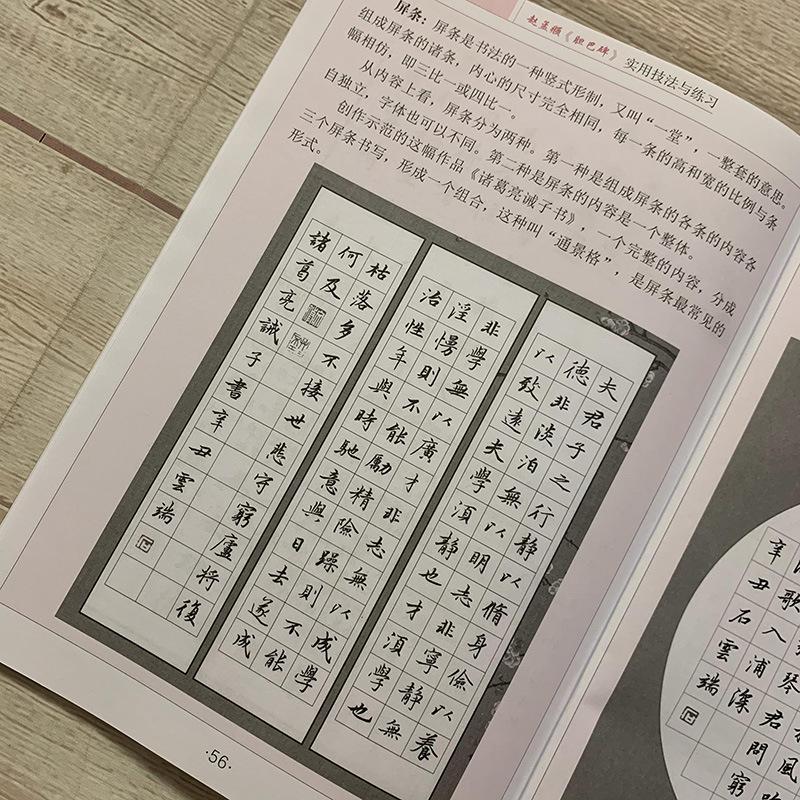 赵孟頫《胆巴碑》实用技法与练习
屏条：屏条是书法的一种竖式形制，又叫“一堂”，一整套的意思。
组成屏条的诸条，内心的尺寸完全相同，每一条的高和宽的比例与条
幅相仿，即三比一或四比一。
从内容上看，屏条分为两种。第一种是组成屏条的各条的内容各
自独立，字体也可以不同。第二种是屏条的内容是一个整体。
创作示范的这幅作品《诸葛亮诫子书》，一个完整的内容，分成
三个屏条书写，形成一个组合，这种叫“通景格”，是屏条最常见的
形式。
夫君子之行静以脩身儉以養
德非淡泊無以明志非寧静無
以致遠夫學須静也才須學也
非學無以廣才非志無以成學
淫慢則不能勵精險躁則不能
治性年與時馳意與日去遂成
枯落多不接世悲守窮廬將復
何及
諸葛亮誡子書辛丑雲瑞
·56·
風
琴君問窮
歌入浦深
辛丑石雲瑞